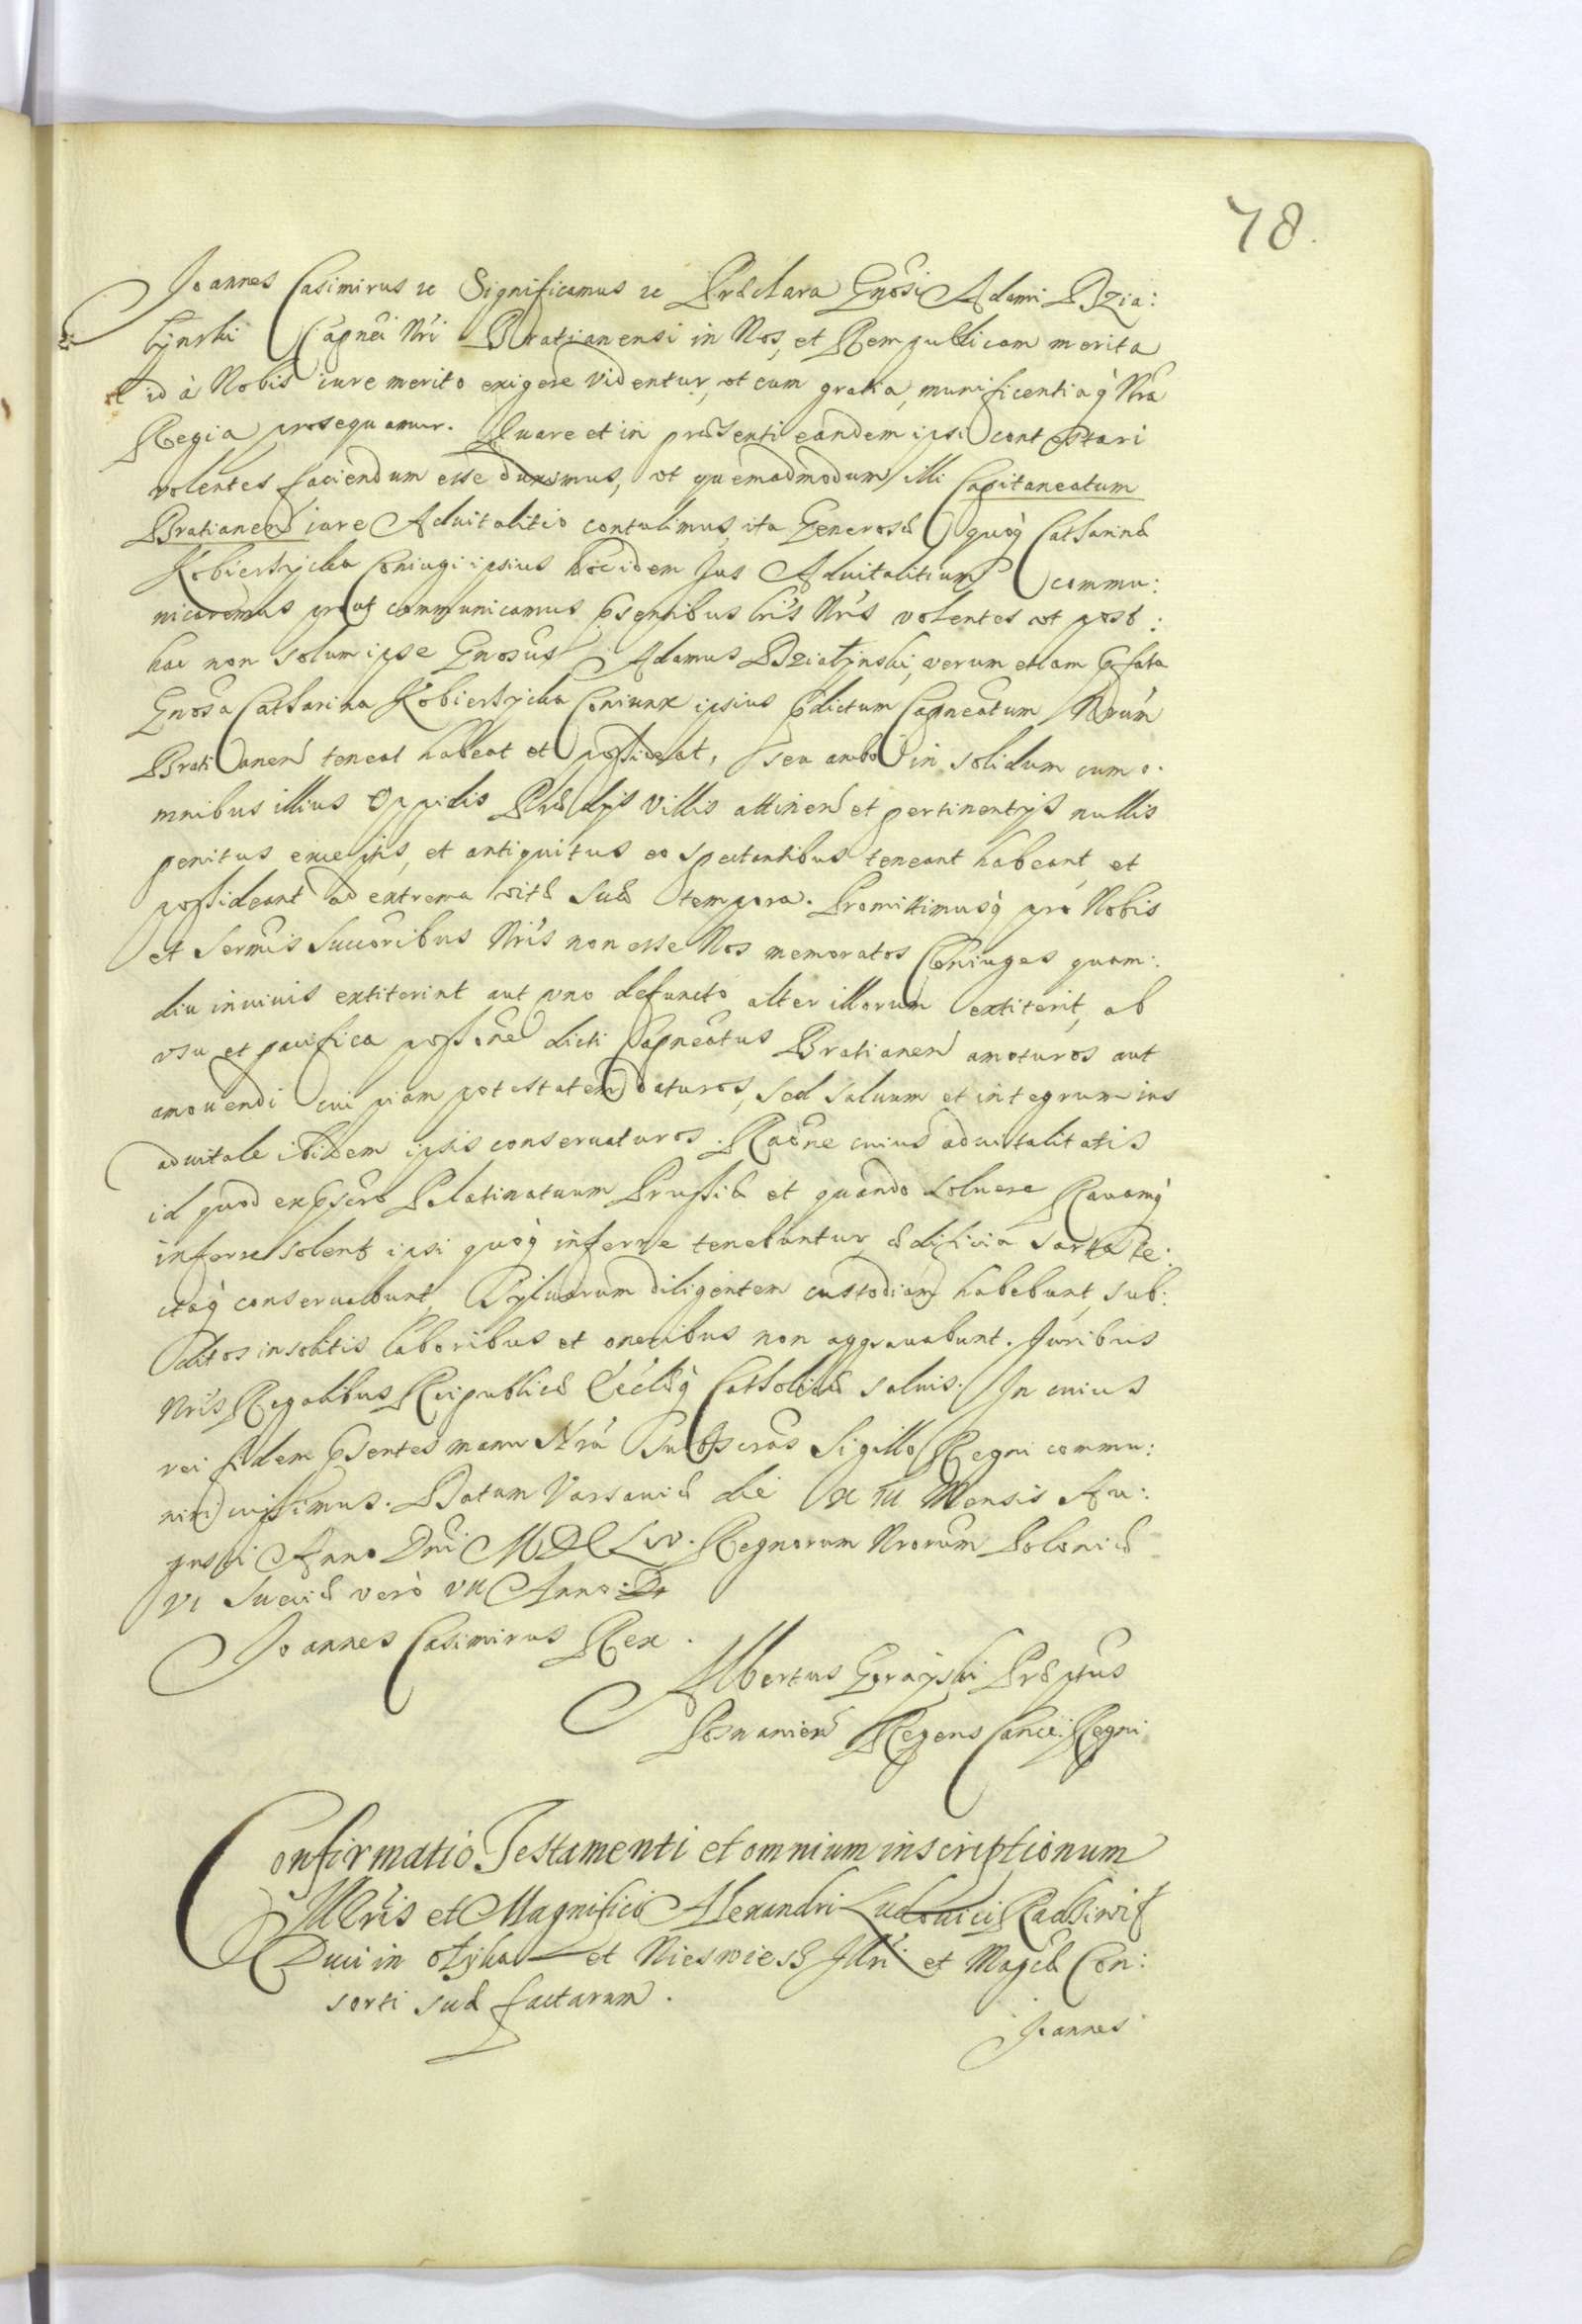 78.
Joannes Casimirus etc Significamus etc Præclara Gnosi Adami Dzia:
łyński Capnei Nri Bratianensi in Nos, et Rempublicam merita
id à Nobis iure merito exigere videntur, ut eum gratia, munificentiaq Nra
Regia prosequamur. Quare et in præsenti eandem ipsi contestari
volentes faciendum esse duximus, ut quemadmodum illi Capitaneatum
Bratianen iure Aduitalitio contulimus, ita Generosæ quoq Catharinæ
Kobierzycka Coniugi ipsius hoc idem Jus Aduitalitium commu:
nicaremus prout communicamus Psentibus lris Nris volentes ut post:
hac non solum ipse Gnosus Adamus Działynski, verum etiam Pfata
Gnosa Catharina Kobierzycka Coniunx ipsius Pdictum Capneatum Nrum
Bratianen teneat habeat et possideat, seu ambo in solidum cum o:
mnibus illius Oppidis Prædijs villis attinen et pertinentijs nullis
penitus exceptis, et antiquitus eo spectantibus teneant habeant, et
possideant ad extrema vitæ suæ tempora. Promittimusq pro Nobis
et Sermis Succoribus Nris non esse Nos memoratos Coniuges quam:
diu in viuis extiterint aut uno defuncto alter illorum extiterit, ab
usu et pacifica possone dicti Capneatus Bratianen amoturos aut
amouendi cuipiam potestatem daturos, sed saluum et integrum ius
aduitale ibidem ipsis conseruaturos. Raone cuius aduitalitatis
id quod ex Pscro Palatinatuum Prussiæ et quando soluere Rauamq
inferre solent ipsi quoq inferre tenebuntur, ædificia sarta te:
ctaq conseruabunt, Syluarum diligentem custodiam habebunt, sub:
ditos insolitis laboribus et oneribus non aggrauabunt. Juribus
Nris Regalibus Reipublicæ Eccliæq Catholicæ saluis. In cuius
rei fidem Psentes manu Nra Subscras Sigillo Regni commu:
niri iussimus. Datum Varsauiæ die Mensis Au:
gusti Anno Dni MDCLIV. Regnorum Nrorum Poloniæ
VI Sueciæ verò VII Anno.
Joannes Casimirus Rex.
Albertus Gorayski Præptus
Posnanien Regens Cancel: Regni
Confirmatio Testamenti et omnium inscriptionum
Illris et Magnifici Alexandri Ludouici Radziwił
Duci in Ołyka et Nieswiesz Illri et Magcæ Con:
sorti suæ factarum.
Joannes